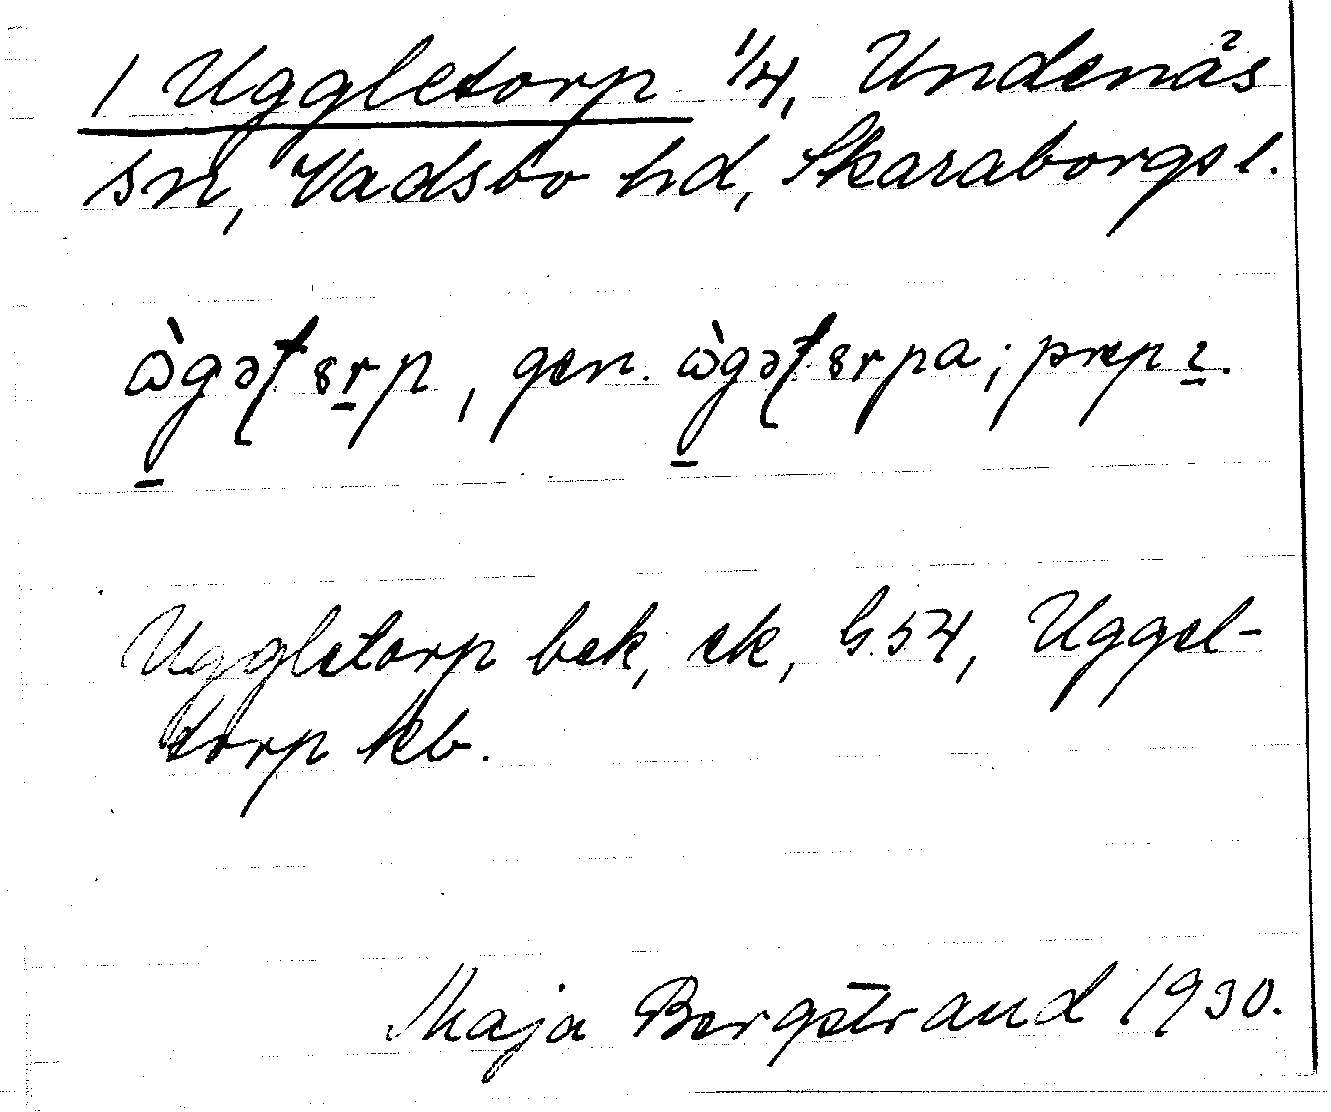 1 Uggletorp 1/4, Undenäs
sn, Vadsbo hd, Skaraborgs l.
gen. prep ı.
Uggletorp bek, ek, G 54, Uggel-
torp kb.
Maja Bergstrand 1930.